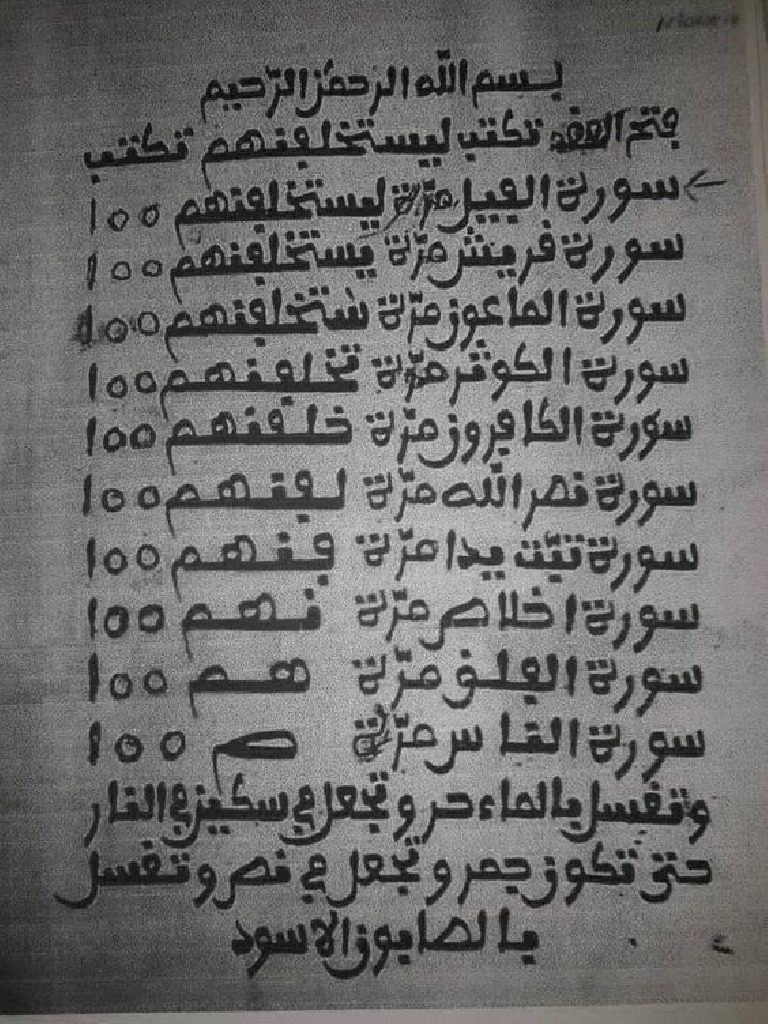 بسم الله الرحمن الرحيم
فتح العقد تكتب ليستخلفنهم تكتب
سورة الفيل مرّة ليستخلفنهم 100
سورة فريش مرّة يستخلفنهم 100
سورة الماعون مرّة ستخلفنهم 100
سورة الكوثر مرّة تخلفنهم 100
سورة الكافرون مرّة خلفنهم 100
سورة نصر الله مرّة لفنهم 100
سورة تبّت يدا مرّة فنهم 100
سورة اخلاص مرّة نهم 100
سورة الفلق مرّة هم 100
سورة الناس مرّة م 100
وتغسل بالماء حر وتجعل في سكين في النار
حتى تكون جمر وتجعل في نصر وتغسل
بالصابون الاسود